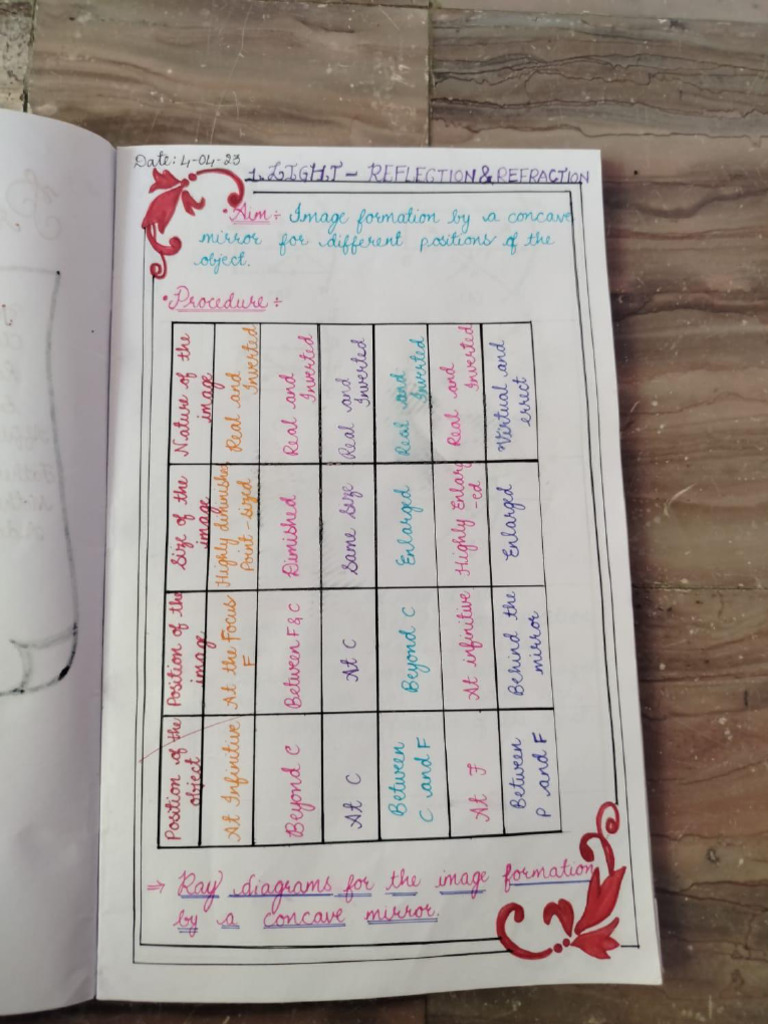 Date: 4-04-23
1. LIGHT - REFLECTION & REFRACTION
• Aim ÷ Image formation by a concave
mirror for different positions of the
object.
• Procedure ÷
Position of the
object
Position of the
image
Size of the
image
Nature of the
image
At Infinitive
At the Focus
F
Highly diminished
Point-sized
Real and
Inverted
Beyond C
Between F & C
Dimished
Real and
Inverted
At C
At C
Same Size
Real and
Inverted
Between
C and F
Beyond C
Enlarged
Real and
Inverted
At F
At infinitive
Highly Enlarg
-ed
Real and
Inverted
Between
P and F
Behind the
mirror
Enlarged
Virtual and
errect
⇒ Ray diagrams for the image formation
by a concave mirror.